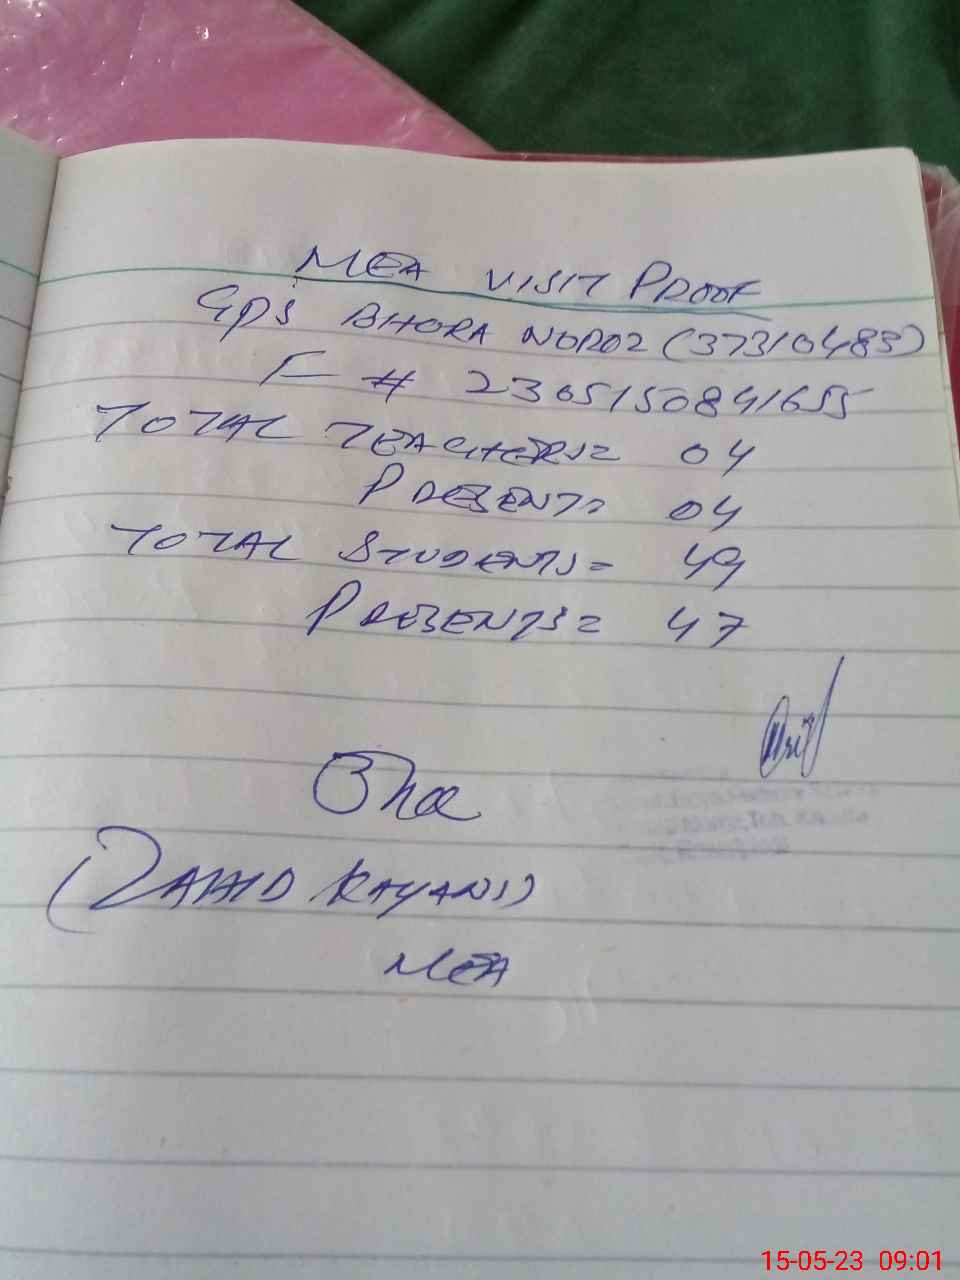 MEA VISIT PROOF
GPS BHORA NOROZ (37310483)
F # 2305150841655
TOTAL TEACHERS= 04
PRESENT= 04
TOTAL STUDENTS= 49
PRESENTS= 47
KAYANI)
MEA
15-05-23 09:01